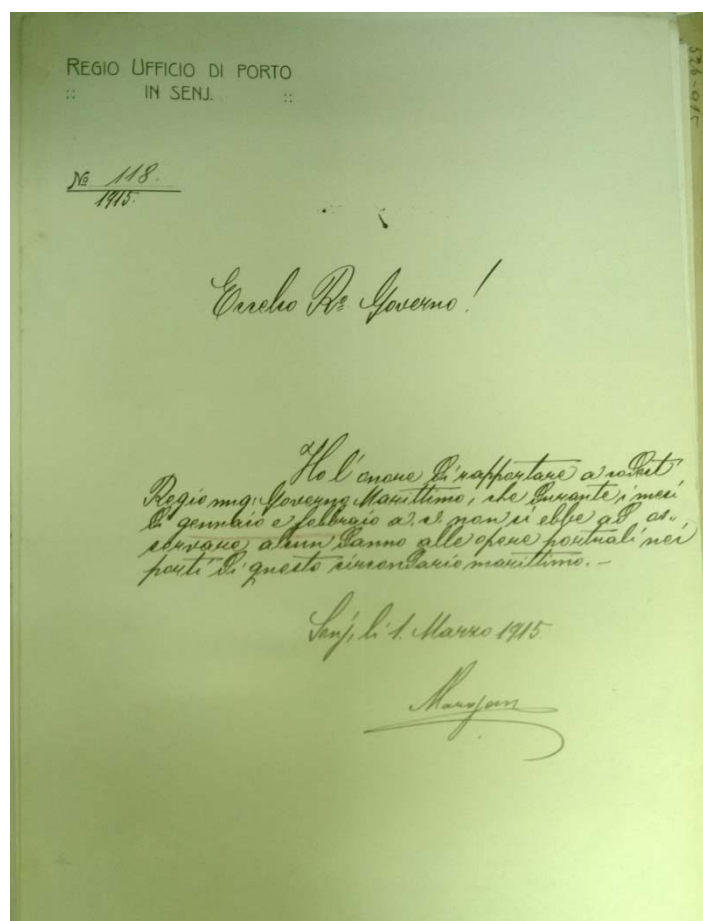 REGIO UFFICIO DI PORTO
:: IN SENJ. ::
526-015
No 118.
1915.
Eccelso Ro Governo!
Ho l'onore di rapportare a codest
Regio ung. Governo Marittimo, che durante i mesi
di gennaio e febbraio a. c. non si ebbe ad os-
servare alcun danno alle opere portuali nei
porti di questo circondario marittimo. —
Senj, li 1. Marzo 1915